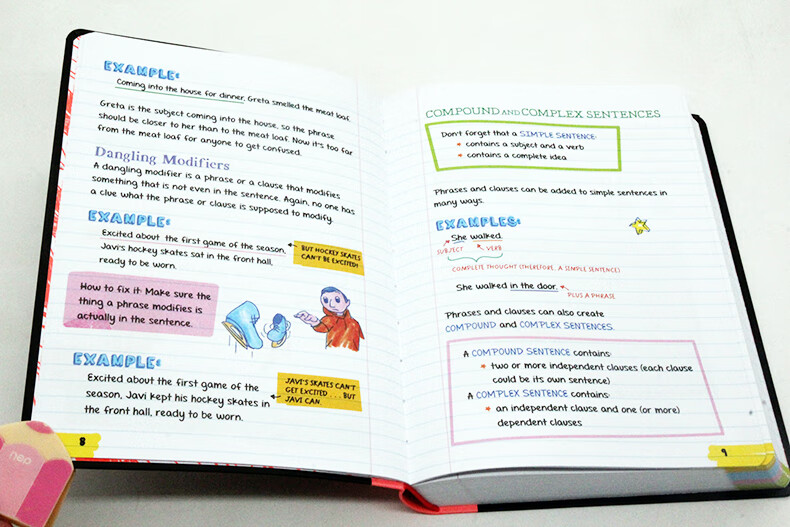 EXAMPLE:
Coming into the house for dinner, Greta smelled the meat loaf.
Greta is the subject coming into the house, so the phrase
should be closer to her than to the meat loaf. Now it's too far
from the meat loaf for anyone to get confused.
Dangling Modifiers
A dangling modifier is a phrase or a clause that modifies
something that is not even in the sentence. Again, no one has
a clue what the phrase or clause is supposed to modify.
EXAMPLE:
Excited about the first game of the season,
Javi's hockey skates sat in the front hall,
ready to be worn.
BUT HOCKEY SKATES
CAN'T BE EXCITED!
How to fix it: Make sure the
thing a phrase modifies is
actually in the sentence.
EXAMPLE:
Excited about the first game of the
season, Javi kept his hockey skates in
the front hall, ready to be worn.
JAVI'S SKATES CAN'T
GET EXCITED . . . BUT
JAVI CAN.
8
neo
COMPOUND AND COMPLEX SENTENCES
Don't forget that a SIMPLE SENTENCE:
* contains a subject and a verb
* contains a complete idea
Phrases and clauses can be added to simple sentences in
many ways.
EXAMPLES:
She walked.
SUBJECT VERB
COMPLETE THOUGHT (THEREFORE, A SIMPLE SENTENCE)
She walked in the door.
PLUS A PHRASE
Phrases and clauses can also create
COMPOUND and COMPLEX SENTENCES.
A COMPOUND SENTENCE contains:
* two or more independent clauses (each clause
could be its own sentence)
A COMPLEX SENTENCE contains:
* an independent clause and one (or more)
dependent clauses
9